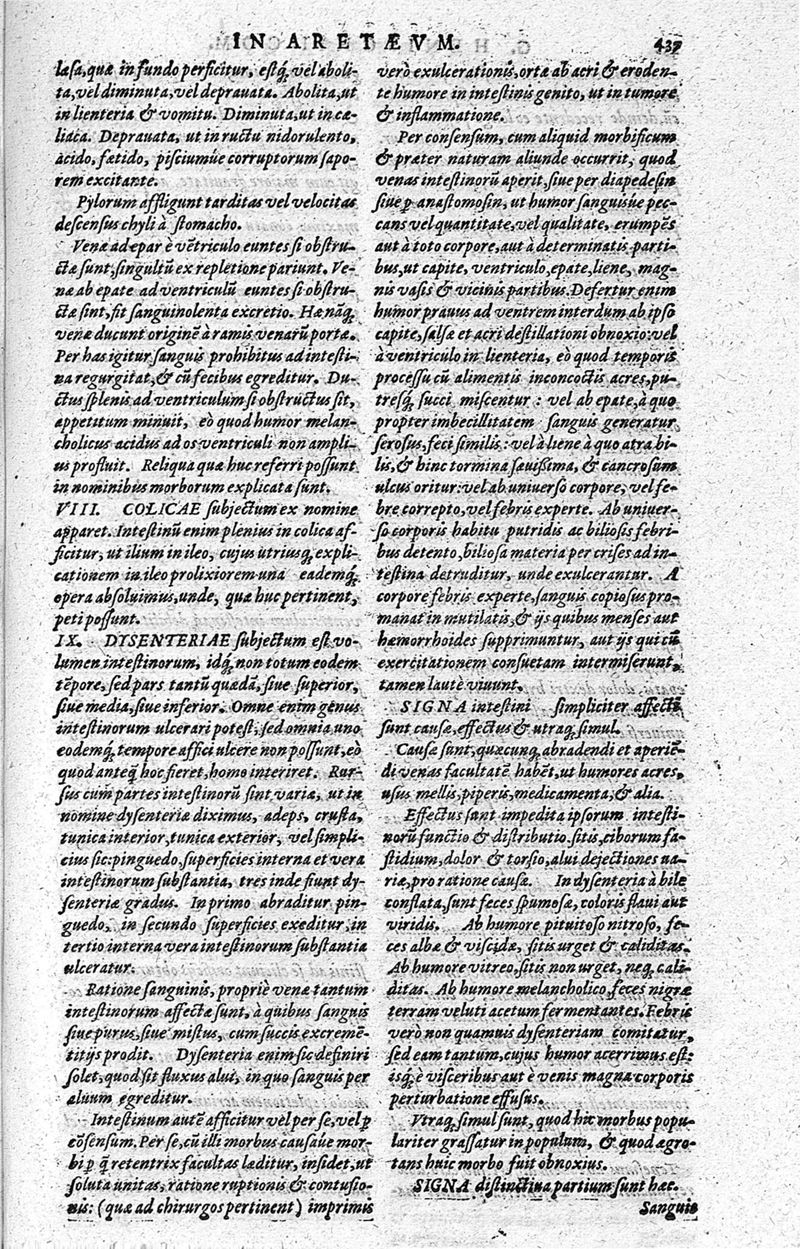 IN ARETÆVM. 437
læsa, quæ in fundo perficitur, estq́, vel aboli-
ta, vel diminuta, vel deprauata. Abolita, ut
in lienteria & vomitu. Diminuta, ut in cæ-
liaca. Deprauata, ut in ructu nidorulento,
acido, fætido, pisciumúe corruptorum sapo-
rem excitante.
Pylorum affligunt tarditas vel velocitas
descensus chyli à stomacho.
Venæ ad epar è vẽtriculo euntes si obstru-
ctæ sunt, singultũ ex repletione pariunt. Ve-
næ ab epate ad ventriculũ euntes si obstru-
ctæ sint, fit sanguinolenta excretio. Hæ nãq́,
venæ ducunt originẽ à ramis venarũ portæ.
Per has igitur sanguis prohibitus ad intesti-
na regurgitat, & cũ fecibus egreditur. Du-
ctus splenis ad ventriculum si obstructus sit,
appetitum minuit, eò quod humor melan-
cholicus acidus ad os ventriculi non ampli-
us profluit. Reliqua quæ huc referri possunt
in nominibus morborum explicata sunt.
VIII. COLICAE subjectum ex nomine
apparet. Intestinũ enim plenius in colica af-
ficitur, ut ilium in ileo, cujus utriusq́, expli-
cationem in ileo prolixiorem una eademq́,
opera absoluimus, unde, quæ huc pertinent,
peti possunt.
IX. DYSENTERIAE subjectum est vo-
lumen intestinorum, idq́, non totum eodem
tẽpore, sed pars tantũ quædã, siue superior,
siue media, siue inferior. Omne enim genus
intestinorum ulcerari potest, sed omnia uno
eodemq́, tempore affici ulcere non possunt, eò
quod anteq̃ hoc fieret, homo interiret. Rur-
sus cum partes intestinorũ sint variæ, ut in
nomine dysenteriæ diximus, adeps, crusta,
tunica interior, tunica exterior, vel simpli-
cius sic: pinguedo, superficies interna et vera
intestinorum substantia, tres inde fiunt dy-
senteriæ gradus. In primo abraditur pin-
guedo, in secundo superficies exeditur, in
tertio interna vera intestinorum substantia
ulceratur.
Ratione sanguinis, propriè venæ tantum
intestinorum affectæ sunt, à quibus sanguis
siue purus, siue mistus, cum succis excremẽ-
titijs prodit. Dysenteria enim sic definiri
solet, quod sit fluxus alui, in quo sanguis per
aluum egreditur.
Intestinum autẽ afficitur vel per se, vel p
cõsensum. Per se, cũ illi morbus causaúe mor-
bi p q̃ retentrix facultas læditur, insidet, ut
soluta unitas, ratione ruptionis & contusio-
nis: (quæ ad chirurgos pertinent) imprimis
verò exulcerationis, ortæ ab acri & eroden-
te humore in intestinis genito, ut in tumore
& inflammatione.
Per consensum, cum aliquid morbificum
& præter naturam aliunde occurrit, quod
venas intestinorũ aperit, siue per diapedesin
siue p anastomosin, ut humor sanguisúe pec-
cans vel quantitate, vel qualitate, erumpẽs
aut à toto corpore, aut à determinatis parti-
bus, ut capite, ventriculo, epate, liene, mag-
nis vasis & vicinis partibus. Defertur enim
humor prauus ad ventrem interdum ab ipso
capite, salsæ et acri destillationi obnoxio: vel
à ventriculo in lienteria, eò quod temporis
processu cũ alimentis inconcoctis acres, pu-
tresq́, succi miscentur: vel ab epate, à quo
propter imbecillitatem sanguis generatur
serosus, feci similis: vel à liene à quo atra bi-
lis, & hinc tormina sæuissima, & cancrosum
ulcus oritur: vel ab universo corpore, vel fe-
bre correpto, vel febris experte. Ab univer-
so corporis habitu putridis ac biliosis febri-
bus detento, biliosa materia per crises ad in-
testina detruditur, unde exulcerantur. A
corpore febris experte, sanguis copiosus pro-
manat in mutilatis, & ijs quibus menses aut
hæmorrhoides supprimuntur, aut ijs qui cũ
exercitationem consuetam intermiserunt,
tamen lautè vivunt.
SIGNA intestini simpliciter affecti
sunt causæ, effectus & utraq́, simul.
Causæ sunt, quæcunq́, abradendi et aperiẽ-
di venas facultatẽ habẽt, ut humores acres,
usus mellis, piperis, medicamenta, & alia.
Effectus sunt impedita ipsorum intesti-
norũ functio & distributio, sitis, ciborum fa-
stidium, dolor & torsio, alui dejectiones ua-
riæ, pro ratione causæ. In dysenteria à bile
conflata, sunt feces spumosæ, coloris flaui aut
viridis. Ab humore pituitoso nitroso, fe-
ces albæ & viscidæ, sitis urget & caliditas.
Ab humore vitreo, sitis non urget, neq́, cali-
ditas. Ab humore melancholico, feces nigræ
terram veluti acetum fermentantes. Febris
verò non quamuis dysenteriam comitatur,
sed eam tantum, cujus humor acerrimus est:
isq́, è visceribus aut è venis magna corporis
perturbatione effusus.
Vtraq́, simul sunt, quod hic morbus popu-
lariter grassatur in populum, & quod ægro-
tans huic morbo fuit obnoxius.
SIGNA distinctiua partium sunt hæc.
Sanguis